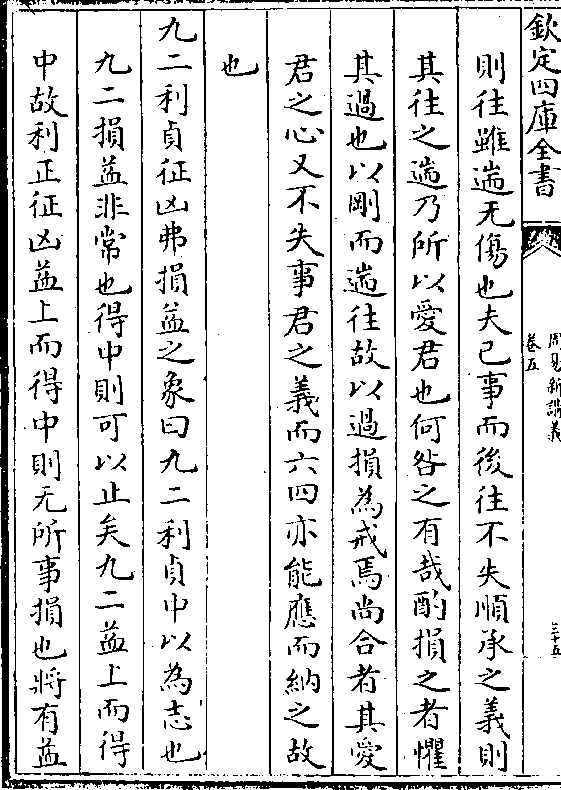 欽定四庫全書
周易新講義
卷五
三十五
則往雖遄无傷也夫已事而後往不失順承之義則
其往之遄乃所以愛君也何咎之有哉酌損之者懼
其過也以剛而遄往故以過損為戒焉尚合者其愛
君之心又不失事君之義而六四亦能應而納之故
也
九二利貞征凶弗損益之象曰九二利貞中以為志也
九二損益非常也得中則可以止矣九二益上而得
中故利正征凶益上而得中則无所事損也將有益